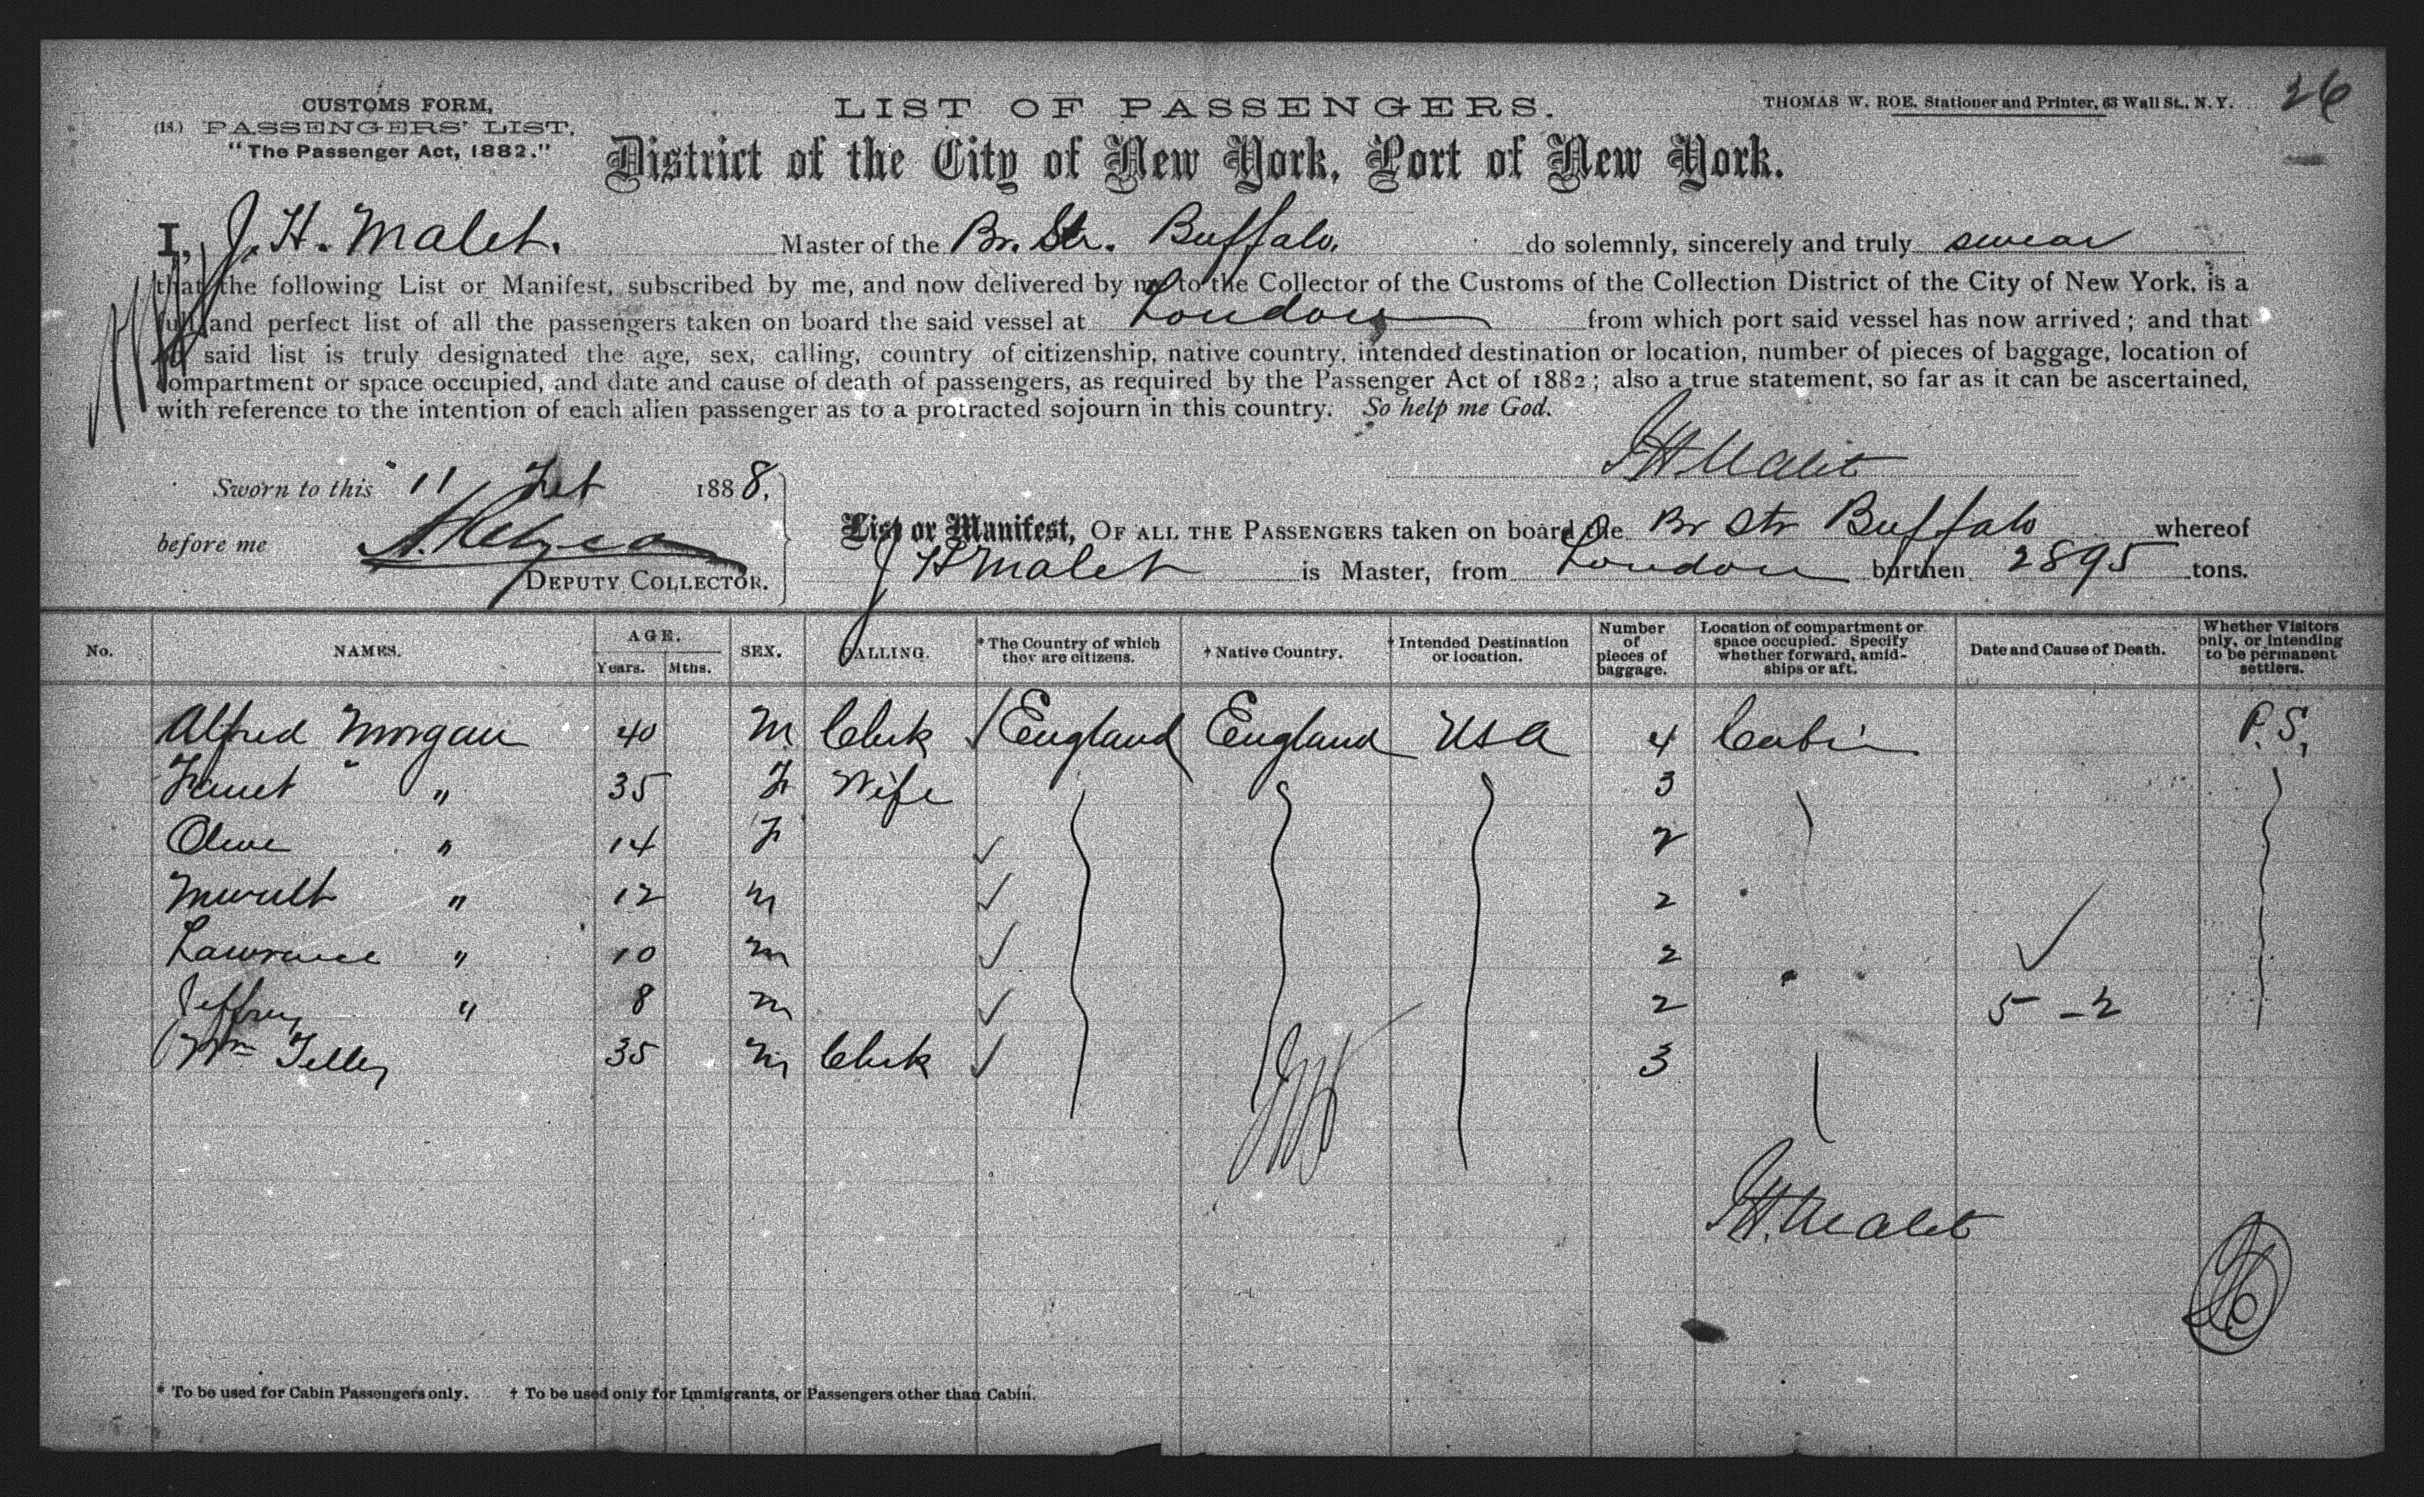 CUSTOMS FORM,
(18.) PASSENGERS' LIST,
"The Passenger Act, 1882."
LIST OF PASSENGERS.
THOMAS W. ROE, Stationer and Printer, 63 Wall St., N.Y.
26
District of the City of New York, Port of New York.
I, J. H. Malet. Master of the Br. Str. Buffalo, do solemnly, sincerely and truly swear
that the following List or Manifest, subscribed by me, and now delivered by me to the Collector of the Customs of the Collection District of the City of New York, is a
full and perfect list of all the passengers taken on board the said vessel at London from which port said vessel has now arrived; and that
said list is truly designated the age, sex, calling, country of citizenship, native country, intended destination or location, number of pieces of baggage, location of
compartment or space occupied, and date and cause of death of passengers, as required by the Passenger Act of 1882; also a true statement, so far as it can be ascertained,
with reference to the intention of each alien passenger as to a protracted sojourn in this country. So help me God.
JH Malet
Sworn to this 11 Feb 1888.
before me
DEPUTY COLLECTOR.
List or Manifest, OF ALL THE PASSENGERS taken on board the Br Str Buffalo whereof
J H Malet is Master, from London burthen 2895 tons.
No. NAMES. AGE. Years. Mths. SEX. CALLING. * The Country of which they are citizens. † Native Country. † Intended Destination or location. Number of pieces of baggage. Location of compartment or space occupied. Specify whether forward, amidships or aft. Date and Cause of Death. Whether Visitors only, or intending to be permanent settlers.
Alfred Morgan 40 M Clerk England England USA 4 Cabin P.S.
" 35 F Wife 3
Olive " 14 F 2
" 12 m 2
Lawrence " 10 m 2
Jeffrey " 8 m 2 5-2
Wm 35 m Clerk 3
J H. Malet
* To be used for Cabin Passengers only. † To be used only for Immigrants, or Passengers other than Cabin.